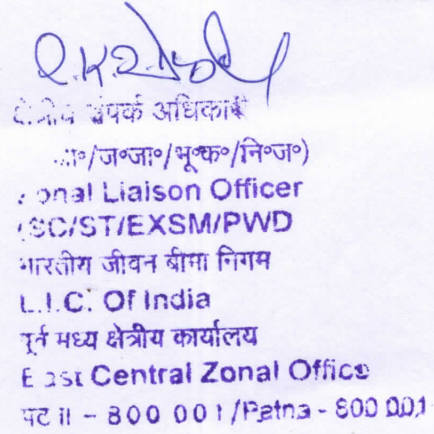 संपर्क अधिकारी
/ज॰जा॰/भू॰क॰/नि॰ज॰)
Liaison Officer
(SC/ST/EXSM/PWD
भारतीय जीवन बीमा निगम
L.I.C. Of India
पूर्व मध्य क्षेत्रीय कार्यालय
East Central Zonal Office
800 001/Patna - 800 001